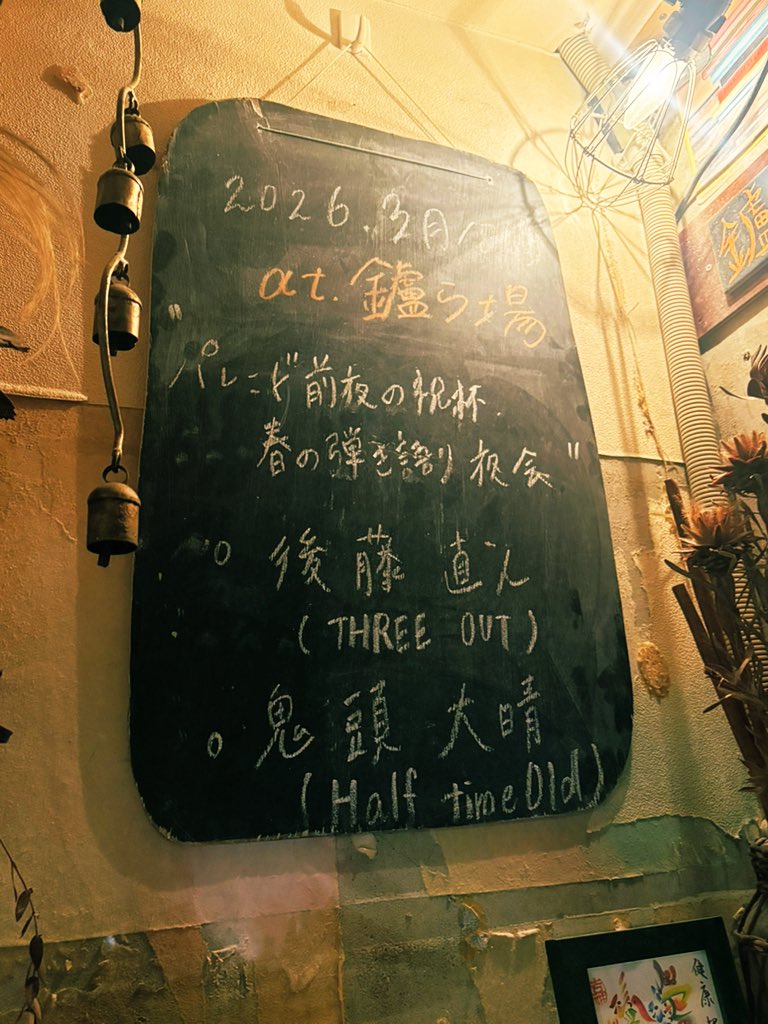 2026.3月
at. 鑪ら場
"パレード前夜の祝杯.
春の弾き語り夜会"
○ 後藤 直人
(THREE OUT)
○ 鬼頭 大晴
(Half time Old)
健康